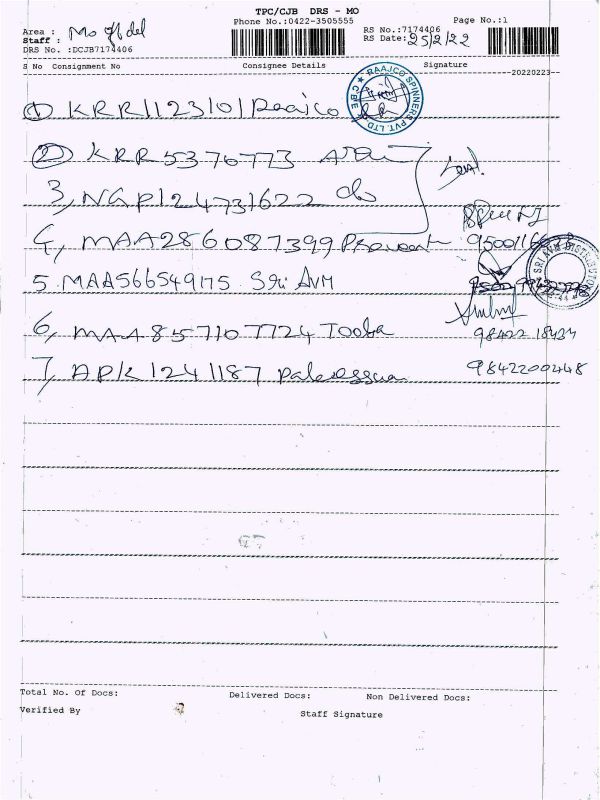 TPC/CJB DRS - MO
Phone No.:0422-3505555
Page No.:1
Area : Mo off del
Staff :
DRS No. :DCJB7174406
RS No.:7174406
RS Date: 25/2/22
S No Consignment No Consignee Details Signature
20220223
① KRR1123101 Raajco
RAAJCO SPINNERS PVT. LTD. CBE
② KRR5370773
3, NGP124731622 do
4, MAA286087399
5. MAA566549175 Sri AVM
SRI AVM DISTRIBUTORS
6, MAA857107724 Tooba 98422 18434
7, APK1241187 9842200448
Total No. Of Docs: Delivered Docs: Non Delivered Docs:
Verified By
Staff Signature